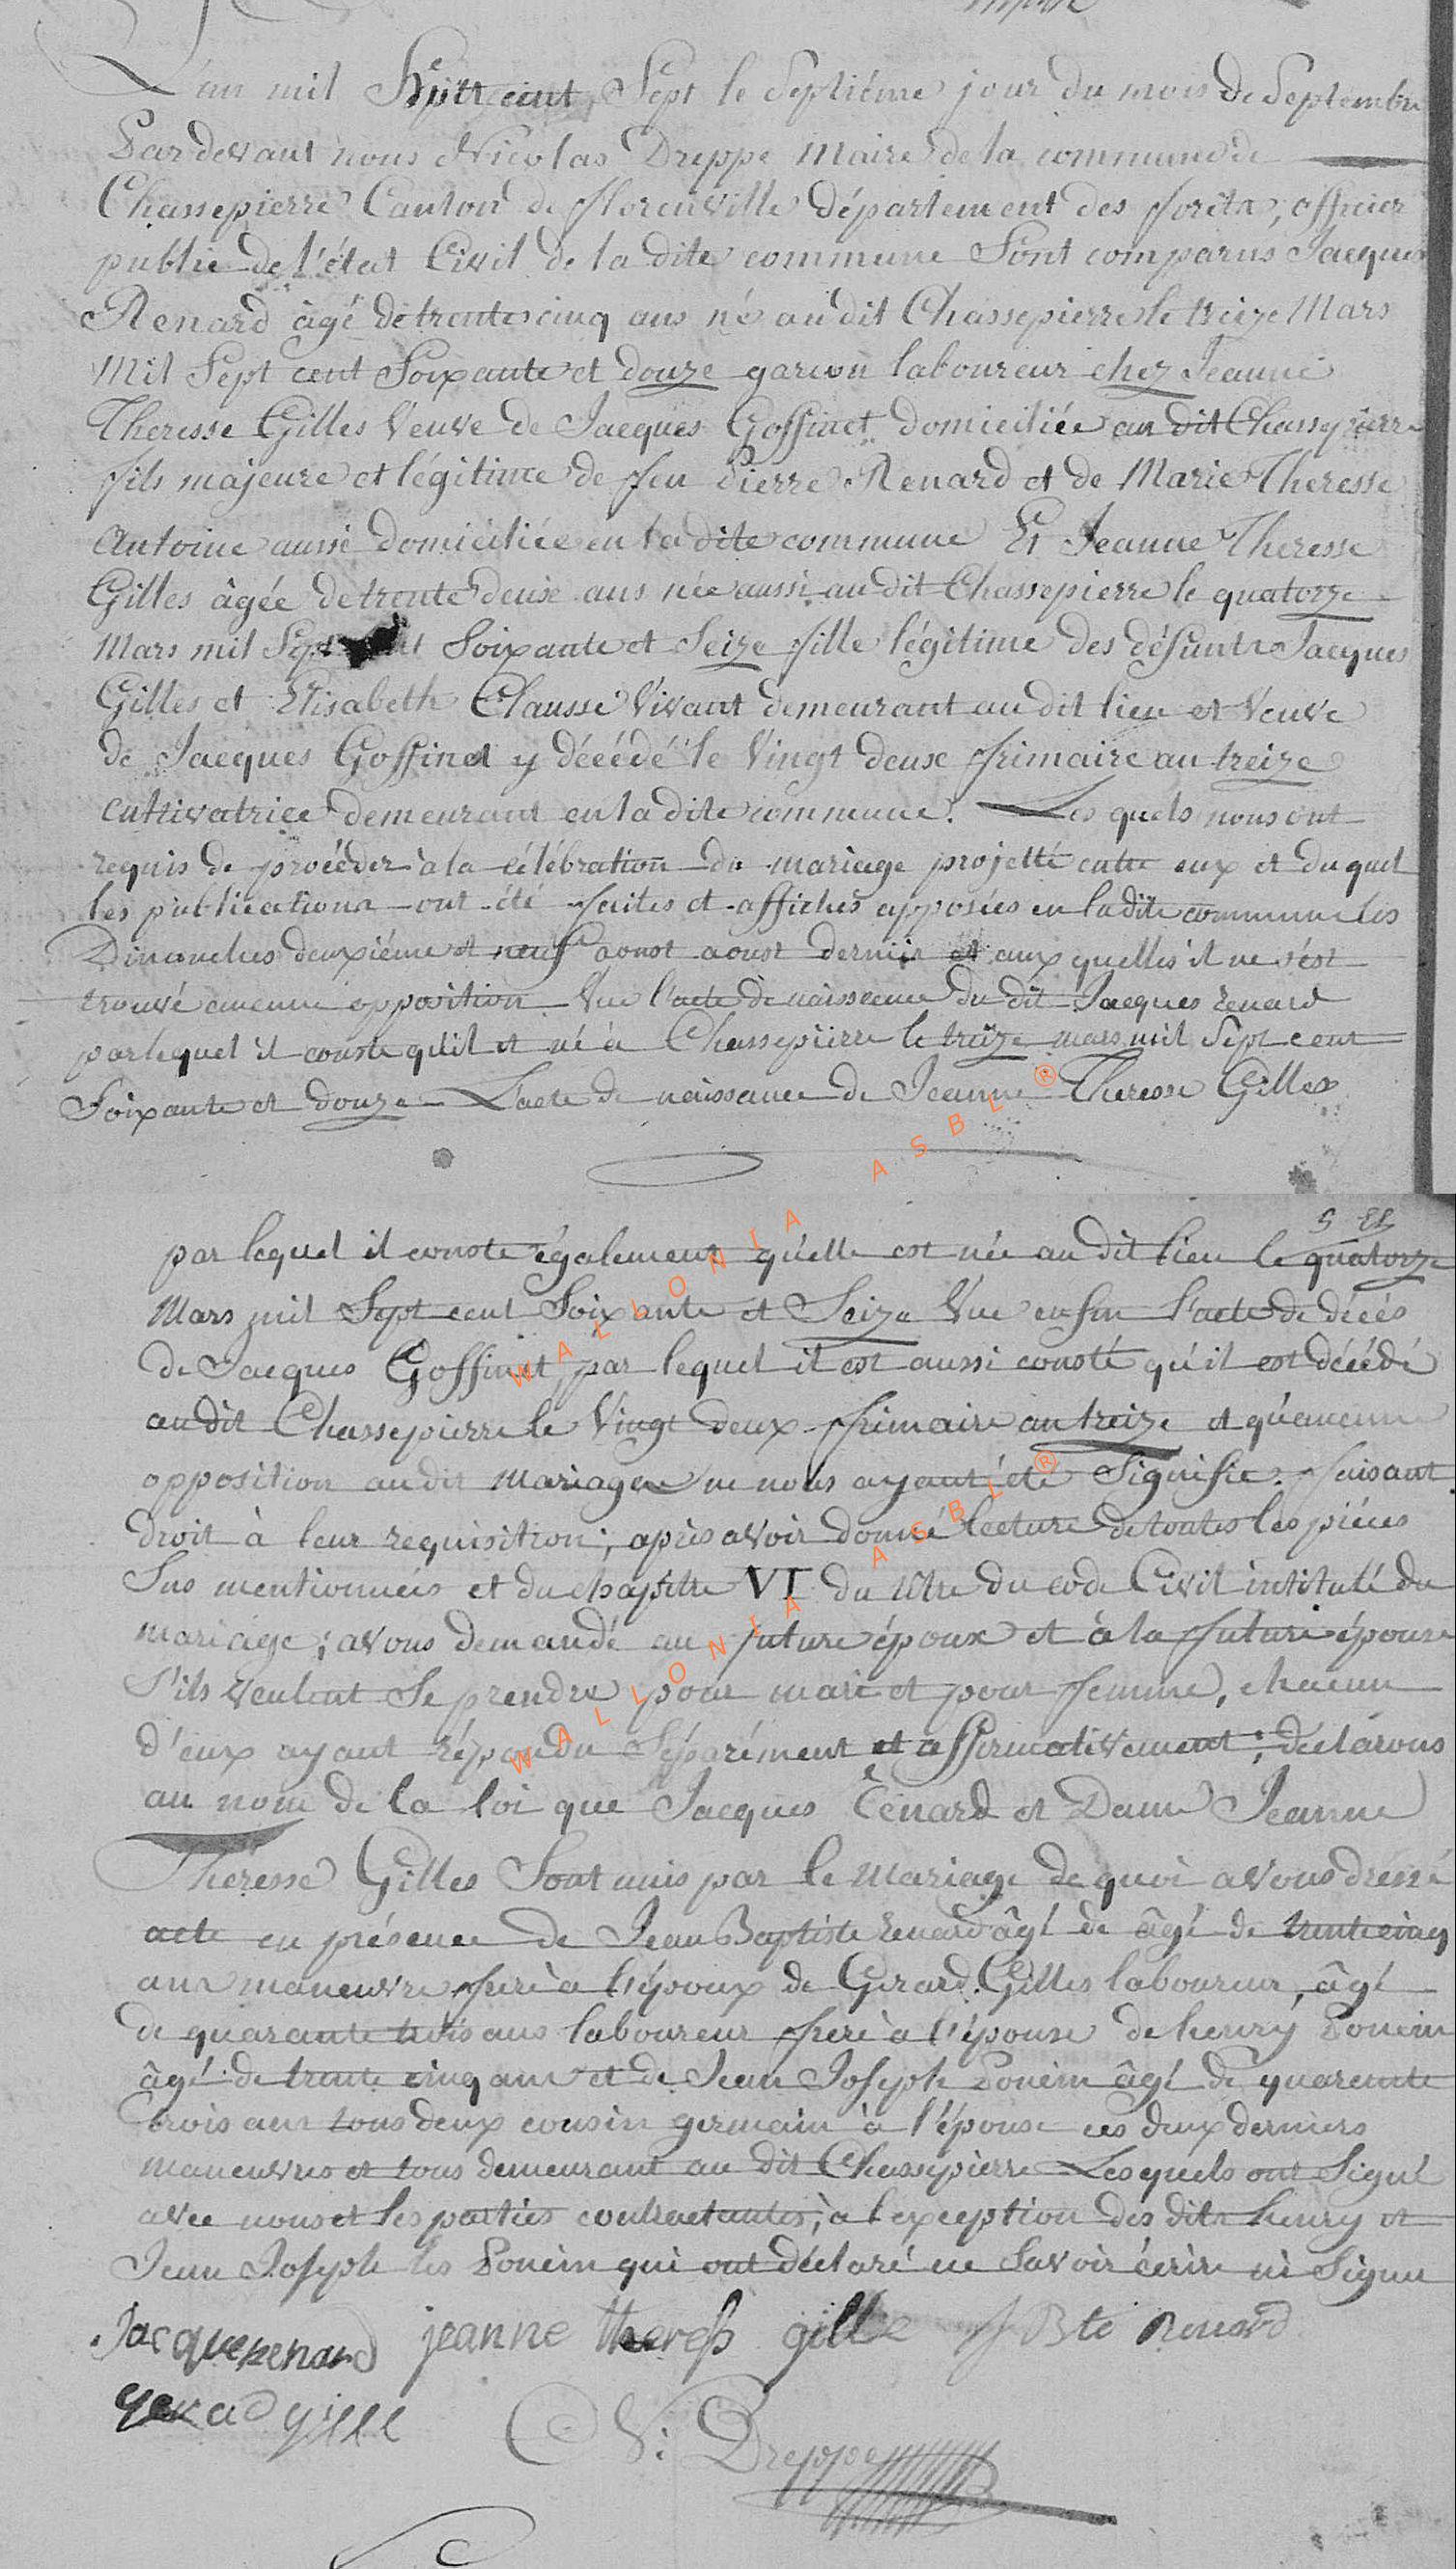 L'an mil huit cent Sept le Septiéme jour du mois de Septembre
Pardevant nous Nicolas Dreppe Maire de la commune de
Chassepierre Canton de florenville département des forêts, officier
public de l'état Civil de la dite commune Sont comparus Jacques
Renard âgé de trente cinq ans né au dit Chassepierre le treize Mars
Mil Sept cent Soixante et douze garcon laboureur chez Jeanne
Theresse Gilles Veuve de Jacques Goffinet domiciliée au dit Chassepierre
fils majeure et légitime de feu Pierre Renard et de Marie Theresse
Antoine aussi domiciliée en la dite commune Et Jeanne Theresse
Gilles âgée de trente deux ans née aussi au dit Chassepierre le quatorze
Mars mil Sept cent Soixante et Seize fille légitime des défunts Jacques
Gilles et Elisabeth Clausse Vivant demeurant au dit lieu et Veuve
de Jacques Goffinet y décédé le Vingt deux frimaire an treize
cultivatrice demeurant en la dite commune. Les quels nous ont
requis de procéder à la célébration du mariage projetté entre eux et duquel
les publications ont été faites et affiches apposées en la dite commune les
Dimanches deuxiéme et neuf aoust aoust dernier et aux quelles il ne s'est
trouvé aucune opposition Vue l'acte de naissance du dit Jacques Renard
par lequel il conste qu'il et né à Chassepierre le treize mars mil Sept cent
Soixante et douze L'acte de naissance de Jeanne Theresse Gilles
par lequel il conste également qu'elle est née au dit lieu le quatorze
Mars mil Sept cent Soixante et Seize Vue enfin l'acte de décés
de Jacques Goffinet par lequel il est aussi consté qu'il est décédé
au dit Chassepierre le Vingt deux frimaire an treize et qu'aucune
opposition au dit Mariage ne nous ayant été Signifié. faisant
droit à leur requisition; après avoir donné lecture de toutes les piéces
Sus mentionnées et du chapitre VI du titre du code Civil intitulé du
mariage; avons demandé au future époux et à la future épouse
S'ils veulent Se prendre pour mari et pour femme, chacun
d'eux ayant répondu Séparément et affirmativement; déclarons
au nom de la loi que Jacques Renard et Dame Jeanne
Theresse Gilles Sont unis par le Mariage de quoi avons dressé
acte en présence de Jean Baptiste Renard âgé de âgé de trente cinq
ans maneuvre frere a l'époux de Gerard Gilles laboureur, âgé
de quarante trois ans laboureur frere a l'épouse de henry Poncin
âgé de trente cinq ans et de Jean Joseph Poncin âgé de quarente
trois ans tous deux cousin germain à l'épouse ces deux derniers
maneuvres et tous demeurant au dit Chassepierre Lesquels ont Signé
avec nous et les parties contractantes, à l'exception des dits henry et
Jean Joseph les Poncin qui ont déclaré ne Savoir écrire ni Signer
Jacque renard jeanne theress gille J Bte Renard
gerad gille N: Dreppe
WALLONIA ASBL ®
WALLONIA ASBL ®